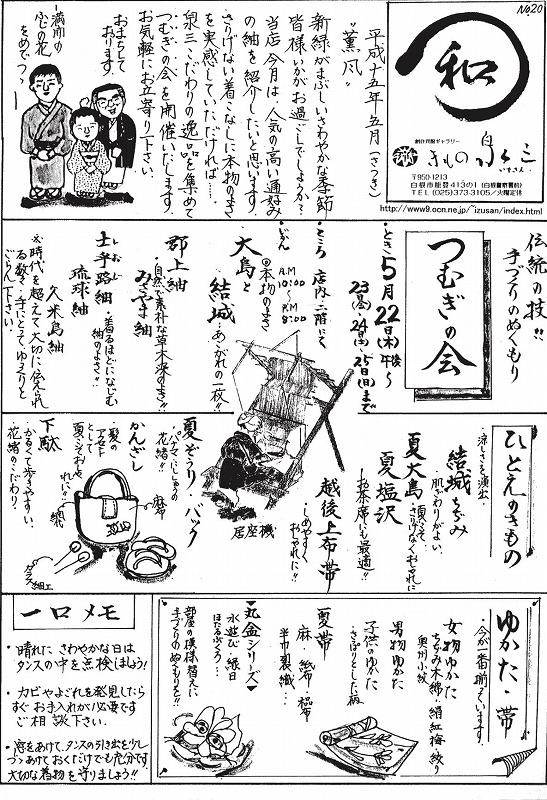 No.20
和
創作呉服ギャラリー
きもの 泉三
いずさん
〒950-1213
白根市能登413の1(白根警察署前)
TEL(025)373-3105/火曜定休
http://www9.ocn.ne.jp/~izusan/index.html
平成十五年五月(さつき)
"薫風"
新緑がまぶしいさわやかな季節
皆様いかがお過ごしでしょうか?
当店今月は、人気の高い通好み
の紬を紹介したいと思います。
さりげない着こなしに本物のよさ
を実感していただければ…。
泉三こだわりの逸品を集めて
つむぎの会を開催いたします。
お気軽にお立寄り下さい。
おまちして
おります。
満開の
恋の花
をめでつつ
伝統の技!!
手づくりのぬくもり
つむぎの会
とき 5月22日(木)午後〜
23(金)・24(土)・25日(日)まで
ところ 店内二階にて
じかん
AM 10:00〜PM 8:00
◎本物のよさ
大島と
結城
あこがれの一枚!!
郡上紬
みさやま紬
・自然で素朴な草木染のよさ!!
士乎路紬
しおじ
・着るほどになじむ
紬のよさ!!
琉球紬
久米島紬
※時代を超えて大切に伝えられ
る数々、手にとって、ゆっくりと
ごらん下さい。
居座機
ひとえのきもの
涼しさを演出
結城ちぢみ
・肌ざわりがよい
夏大島
夏塩沢
・お茶席にも最適!!
越後上布帯
・しめやすく
おしゃれに!!
夏ぞうり・バック
パナマにししゅうの
花緒!!
かんざし
・髪の
アクセント
として
下駄
かるくて歩きやすい。
花緒のこだわり
麻布
ガラス細工
ゆかた・帯
・今が一番揃っています。
女物ゆかた
ちぢみ木綿・絹紅梅・絞り
奥州小紋
男物ゆかた
子供のゆかた
・さっぱりとした柄
夏帯
麻・紙布・榀布
半巾製織…
丸金シリーズ
水遊び・縁日
ほたるぶくろ…
部屋の模様替えに
手づくりのぬくもりを!!
一口メモ
・晴れた、さわやかな日は
タンスの中を点検しましょう!
・カビやよごれを発見したら
すぐお手入れが必要です
ご相談下さい。
・窓をあけて、タンスの引き出しを少し
づつあけておくだけでも充分です
大切な着物を守りましょう!!